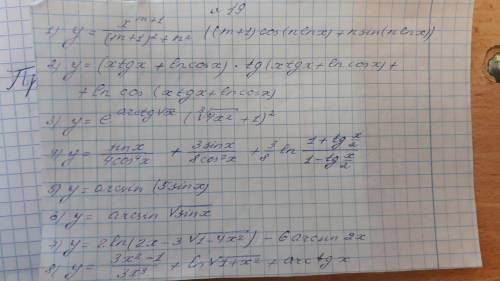 № 19
1) y = x^(m+1) / ((m+1)² + n²) ((m+1) cos(n ln x) + n sin(n ln x))
2) y = (x tg x + ln cos x) · tg(x tg x + ln cos x) +
+ ln cos (x tg x + ln cos x)
3) y = e^(arctg √x) (∛(4x²) + 1)²
4) y = sin x / 4cos⁴x + 3 sin x / 8cos²x + 3/8 ln (1 + tg x/2) / (1 - tg x/2)
5) y = arcsin (5 sin x)
6) y = arcsin √sin x
7) y = 2 ln(2x - 3√(1-4x²)) - 6 arcsin 2x
8) y = (3x² - 1) / 3x³ + ln √(1+x²) + arctg x